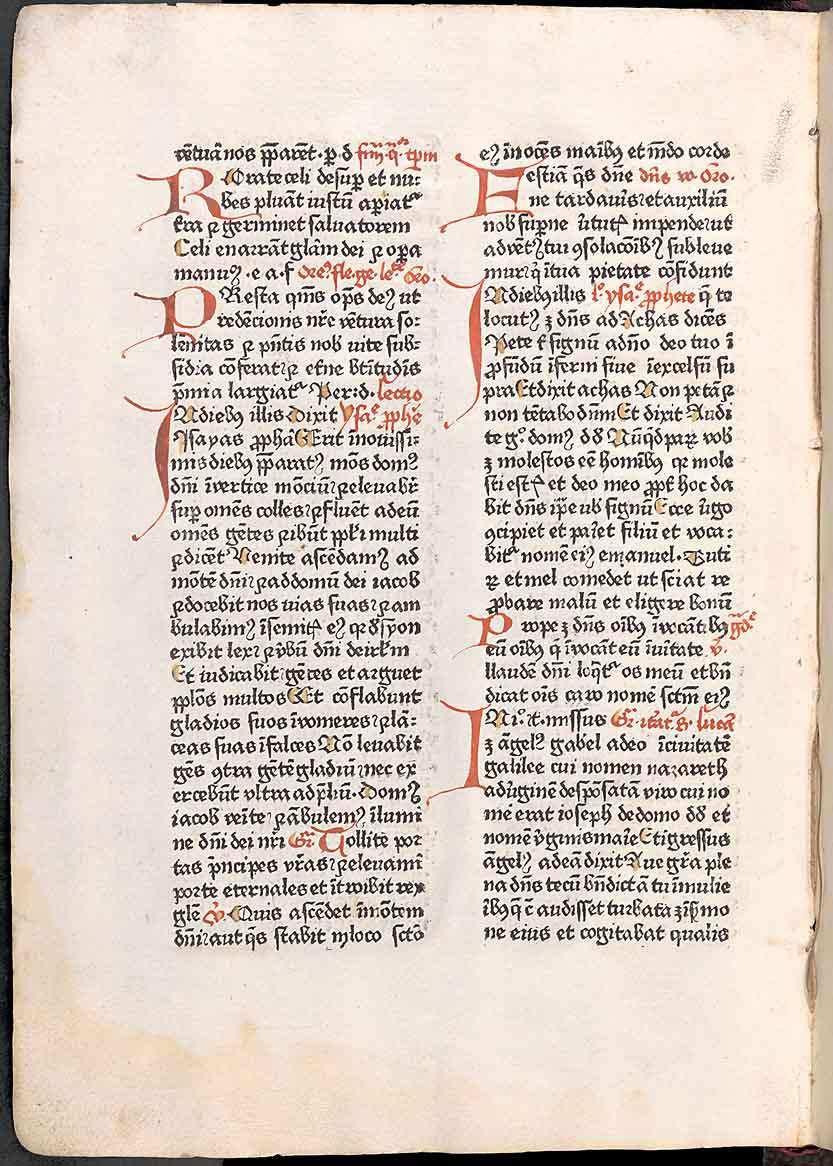 ventuā nos p̄parēt · p · d fr̄ iiij · q̄r tp̄m
RORate celi desup̱ et nu:
bes pluāt iustū ap̱iatr
tr̄a ꝛ germinet salvatorem
Celi enarrāt gl̄am dei ꝛ op̱a
manuꝫ · e · a · f Orem⁹ fle · ge · leꝫ Oro ·
PResta qm̄s op̄s deꝰ ut
redēcionis nr̄e vētura so:
lēnitas ꝛ p̄ntis nob vite sub:
sidia cōferat ꝛ et̄ne bt̄itudīs
p̄mia largiatr Per : d · Lectio
INdiebꝰ illis Dixit ysae p̄phe
Isayas p̄phā Erit ī novissi:
mis diebꝰ p̄paratꝰ mōs domꝰ
dn̄i ī vertice mōciū ꝛ elevabr̄
sup̱ omēs colles ꝛ fluēt ad eū
omēs gētes ꝛ ibūt pp̄li multi
ꝛ dicēt Venite ascēdamꝰ ad
mōtē dn̄i ꝛ ad domū dei iacob
ꝛ docebit nos vias suas ꝛ am
bulabimꝰ ī semitꝭ eiꝰ qꝛ d̄ syon
exibit lex ꝛ v̄bū dn̄i de irl̄m
Et iudicabit gētes et arguet
pp̄los multos Et cōflabunt
gladios suos ī vomeres ꝛ lā:
ceas suas ī falces Nō levabit
gēs ꝯtra gētē gladiū nec ex
ercebūt vltra ad p̄liū · Domꝰ
iacob veīte ꝛ ābulemꝰ ī lumi
ne dn̄i dei nr̄i Gr̄ Tollite por
tas p̄ncipes vr̄as ꝛ elevamī
porte eternales et ītroibit rex
gl̄e v̄ · Quis ascēdet ī mōtem
dn̄i ꝛ aut q̄s stabit ī loco sctō
eiꝰ īnocēs maībꝰ et mūdo corde
FEstiā q̄s dn̄e dn̄s vo · Oro ·
ne tardav̄is et auxiliū
nob sup̱ne v̄tutꝭ impende ut
advētꝰ tui ꝯsolacōibꝰ subleve
mur q̄ ī tua pietate cōfidunt
INdiebꝰ illis l°· ysae p̄phete q̄ te
locutꝰ ꝫ dn̄s ad Achas dicēs
Pete t̄ signū a dn̄o deo tuo ī
p̱fūdū īferni sive ī excelsū su
pra Et dixit achas Non petā ꝛ
non tētabo dn̄m Et dixit Audi
te gº domꝰ dd̄ Nūqͥd parꝝ vob
ꝫ molestos eē homībꝰ qꝛ mole
sti estꝭ et deo meo p̱pt̄ hoc da
bit dn̄s ip̄e vb̄ signū Ecce v̄go
ꝯcipiet et pariet filiū et voca:
bitr nomē eiꝰ emanuel · Buti
ꝝ et mel comedet ut sciat re
p̱bare malū et eligere bonū
PRope ꝫ dn̄s oībꝰ īvocātibꝰ gd̄e
eū oībꝰ q̄ īvocāt eū ī vitate v̄ ·
llaudē dn̄i loq̄tr os meū et bn̄
dicat oīs caro nomē sctm̄ eiꝰ
INi° · t · missus Gr · itatr · s · lucā
ꝫ āgelꝰ gabel a deo ī civitatē
galilee cui nomen nazareth
ad v̄ginē despōsatā viro cui no
mē erat ioseph de domo dd̄ et
nomē v̄ginis mar̄ie Et īgressus
āgelꝰ ad eā dixit Ave gr̄a ple
na dn̄s tecū bn̄dicta tu ī mulie
ibꝰ q̄ ē audisset turbata ꝫ ī s̄mo
ne eius et cogitabat qualis